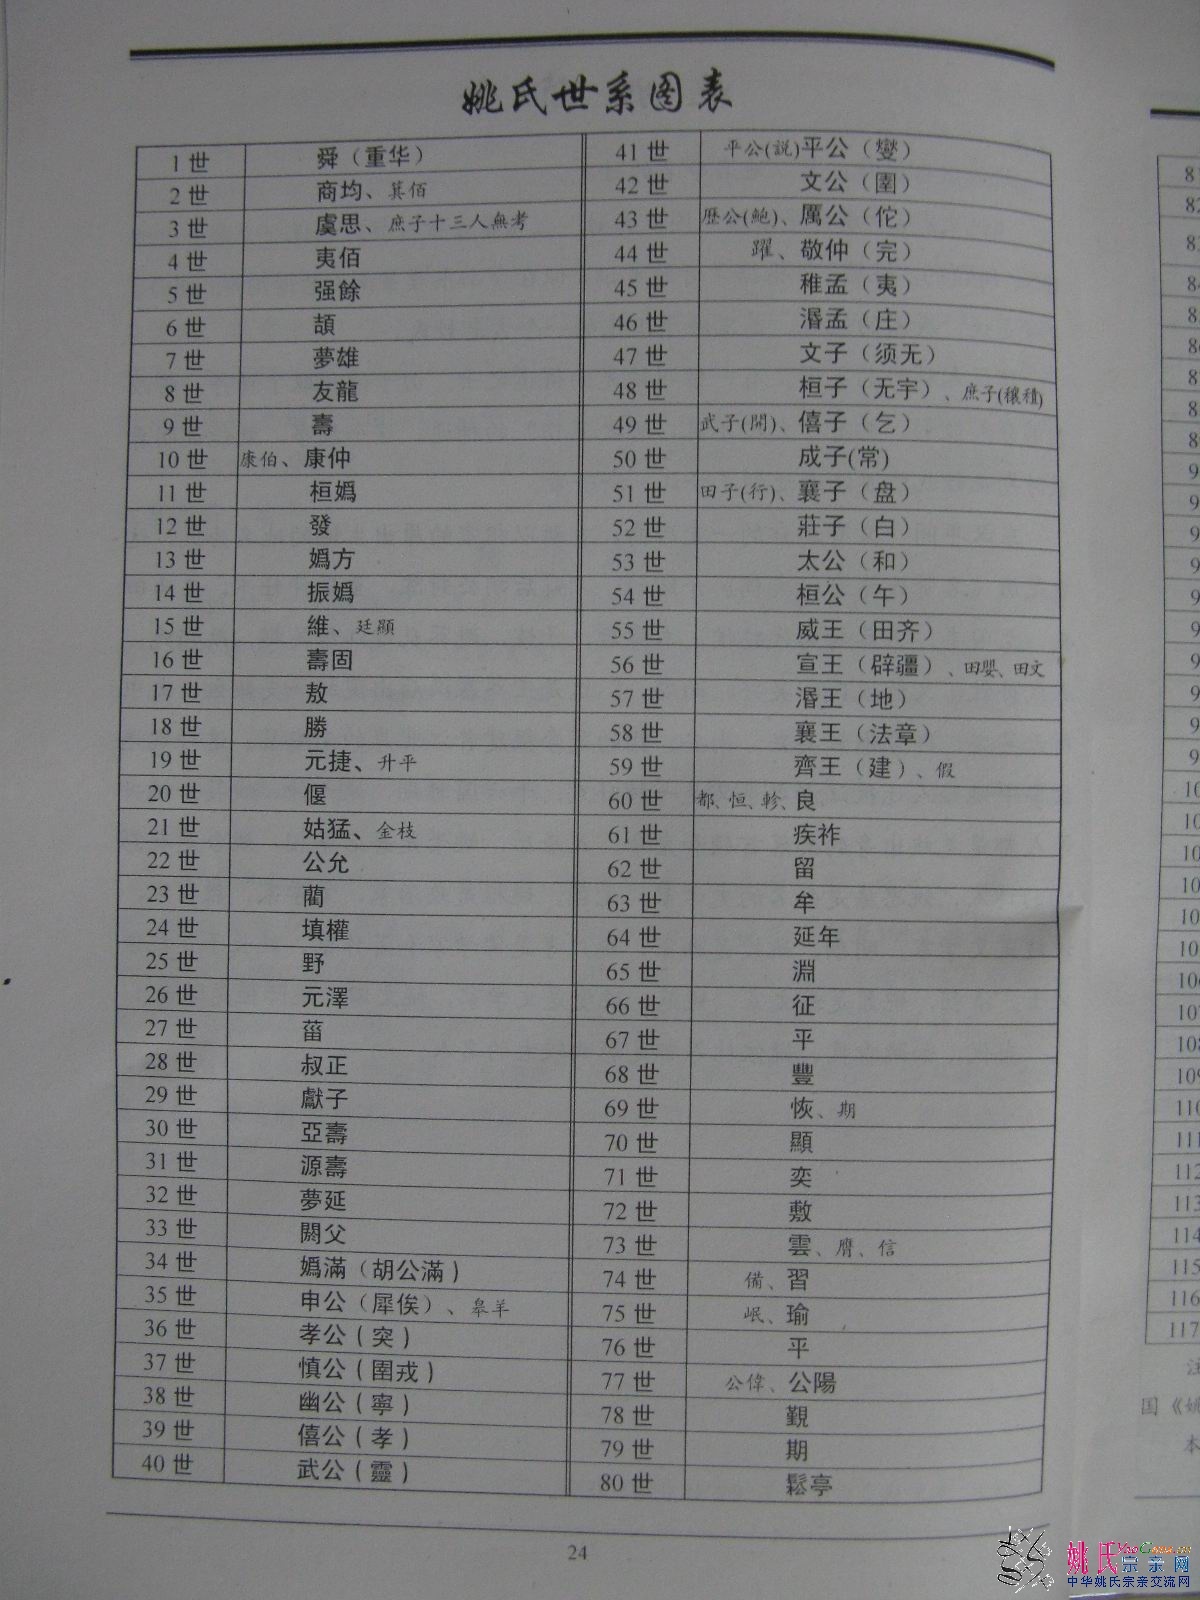 姚氏世系图表
1世 舜（重华）
2世 商均、箕佰
3世 虞思、庶子十三人無考
4世 夷佰
5世 强餘
6世 頡
7世 夢雄
8世 友龍
9世 壽
10世 康伯、康仲
11世 桓嬀
12世 發
13世 嬀方
14世 振嬀
15世 維、廷顯
16世 壽固
17世 敖
18世 勝
19世 元捷、升平
20世 偃
21世 姑猛、金枝
22世 公允
23世 蘭
24世 填權
25世 野
26世 元澤
27世 菑
28世 叔正
29世 獻子
30世 亞壽
31世 源壽
32世 夢延
33世 閼父
34世 嬀滿（胡公滿）
35世 申公（犀俟）、皋羊
36世 孝公（突）
37世 慎公（圉戎）
38世 幽公（寧）
39世 僖公（孝）
40世 武公（靈）
41世 平公(説)平公（燮）
42世 文公（圉）
43世 歷公(鮑)、厲公（佗）
44世 躍、敬仲（完）
45世 稚孟（夷）
46世 湣孟（庄）
47世 文子（须无）
48世 桓子（无宇）、庶子(穰積)
49世 武子(開)、僖子（乞）
50世 成子(常)
51世 田子(行)、襄子（盘）
52世 莊子（白）
53世 太公（和）
54世 桓公（午）
55世 威王（田齐）
56世 宣王（辟疆）、田嬰、田文
57世 湣王（地）
58世 襄王（法章）
59世 齊王（建）、假
60世 都、恒、軫、良
61世 疾祚
62世 留
63世 牟
64世 延年
65世 淵
66世 征
67世 平
68世 豐
69世 恢、期
70世 顯
71世 奕
72世 敷
73世 雲、膺、信
74世 備、習
75世 岷、瑜
76世 平
77世 公偉、公陽
78世 覲
79世 期
80世 鬆亭
24
84
106
107
108
109
110
111
112
113
114
115
116
117
国《姚
本
姚氏宗亲网
中华姚氏宗亲交流网